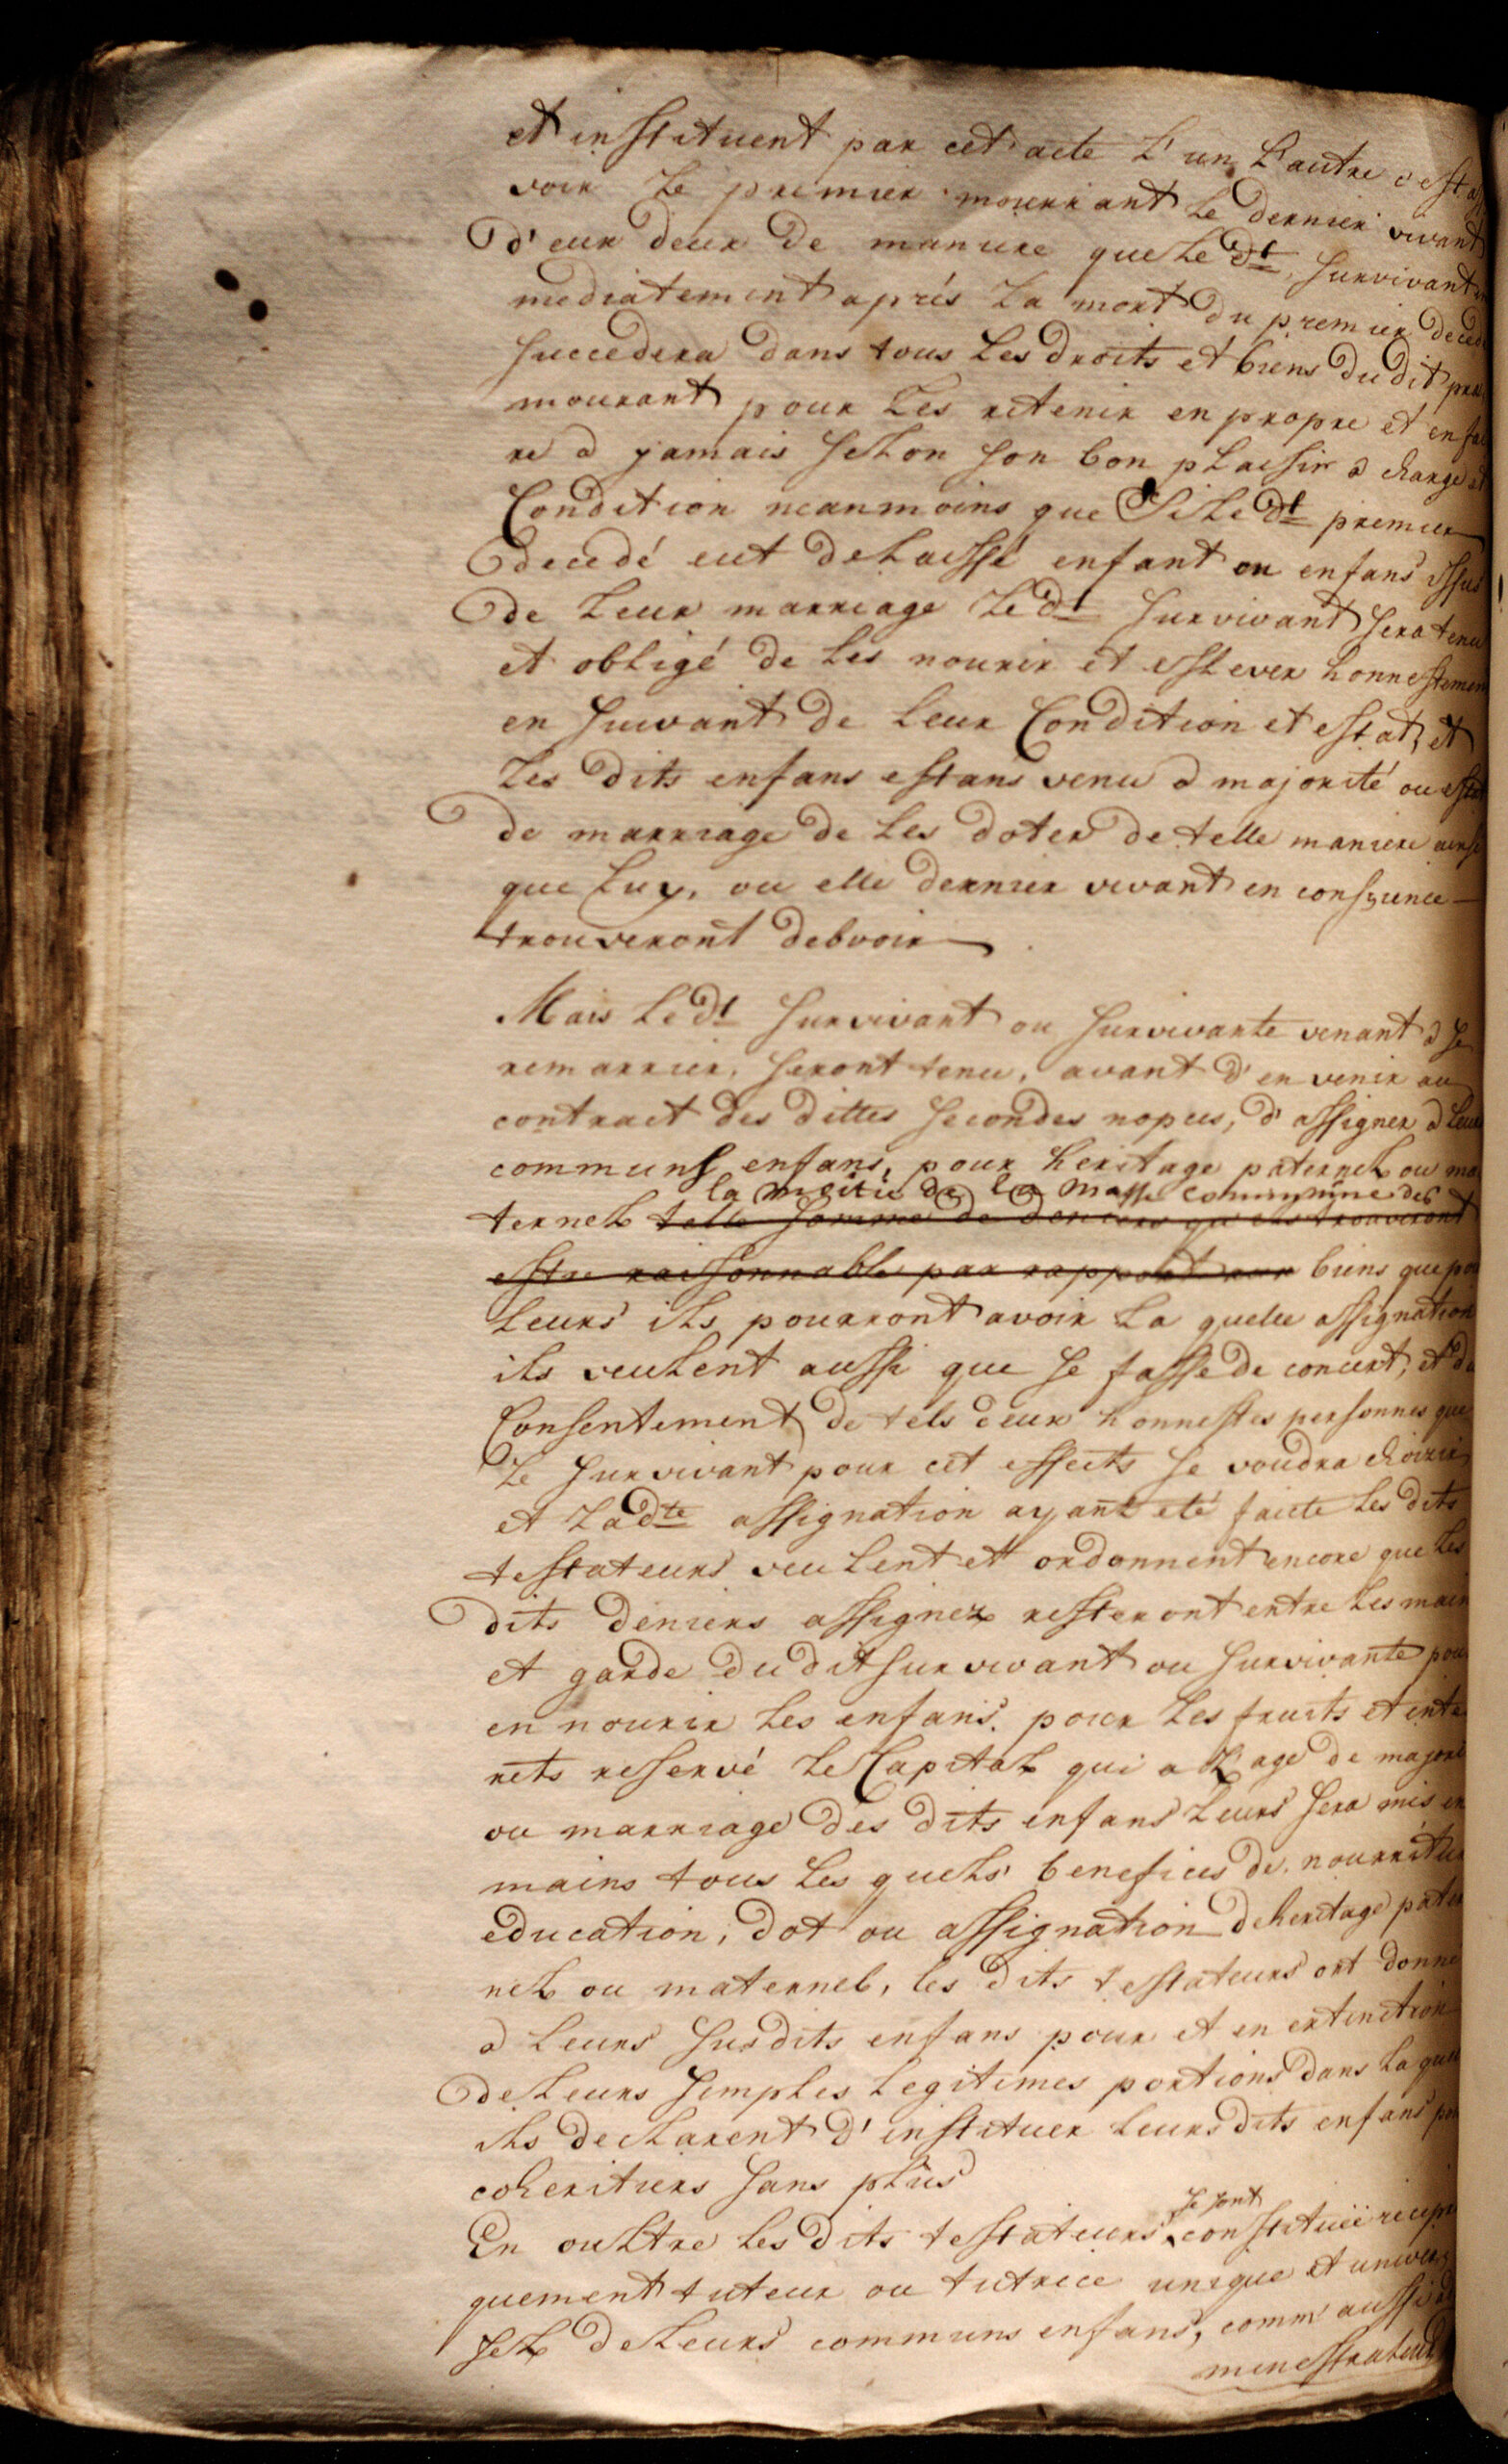 et instituent par cet acte l'un l'autre c'est a
voir le premier mourrant le dernier vivant
d'eux deux de maniere que le dt survivant
mediatement aprés la mort du premier deced
succedera dans tous les droits et biens du dit pre
mourant pour les retenir en propre et en fai
re a jamais selon son bon plaisir a charge et
Condition neanmoins que si le dt premier
decedé eut delaissé enfant ou enfans issus
de leur marriage le dt survivant sera tenu
et obligé de les nourir et eslever honnestement
en suivant de leur Condition et estat, et
les dits enfans estans venu a majorité ou estat
de marriage de les doter de telle maniere ainsi
que luy, ou elle dernier vivant en conscience
trouveront debvoir
Mais le dt survivant ou survivante venant a se
remarrier, seront tenu, avant d'en venir au
contract des dittes secondes nopces, d'assigner a leur
communs enfans, pour heritage paternel ou ma
la moitié de la masse commune des
ternel telle somme de deniers qu'ils trouveront
estre raisonnable par rapport aux biens que pou
leurs ils pourront avoir la quelle assignation
ils veulent aussi que se fasse de concert, et du
Consentement de tels deux honnestes personnes que
le survivant pour cet effects se voudra choisir
et la dte assignation ayant eté faicte les dits
testateurs veulent et ordonnent encore que les
dits deniers assignez resteront entre les main
et garde du dit survivant ou survivante pour
en nourir les enfans. pour les fruits et inte
rets reservé le Capital qui a l'age de majori
ou marriage des dits enfans leurs sera mis en
mains tous les quels benefices de nourritur
education, dot ou assignation de heritage pater
nel ou maternel, les dits testateurs ont donne
a leurs susdits enfans pour et en extinction
de leurs simples legitimes portions dans la quel
ils declarent d'instituer leurs dits enfans pou
coheritiers sans plus
se sont
En oultre les dits testateurs constitué recipro
quement tuteur ou tutrice unique et univer
sel de leurs communs enfans, comm' aussi ad
menestrateur